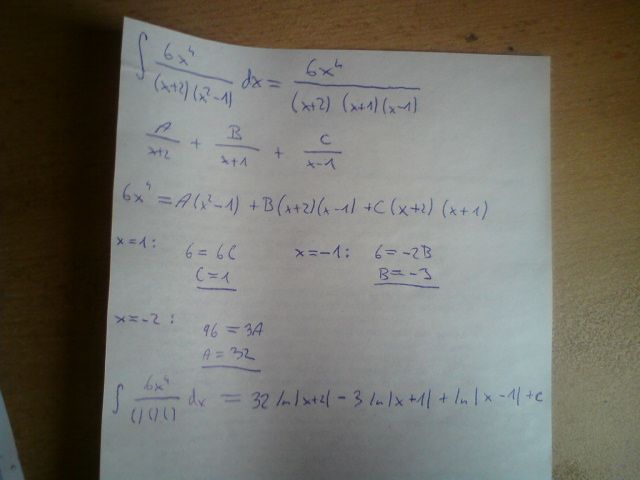 ∫ 6x⁴/((x+2)(x²-1)) dx = 6x⁴/((x+2)(x+1)(x-1))
A/(x+2) + B/(x+1) + C/(x-1)
6x⁴ = A(x²-1) + B(x+2)(x-1) + C(x+2)(x+1)
x=1: 6 = 6C x=-1: 6 = -2B
C = 1 B = -3
x=-2: 96 = 3A
A = 32
∫ 6x⁴/(()()()) dx = 32 ln|x+2| - 3 ln|x+1| + ln|x-1| + c